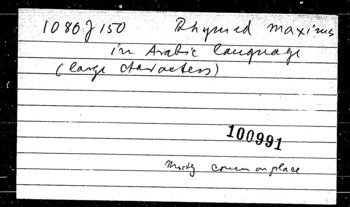 1080 J 150 Rhymed maxims
in Arabic language
(large characters)
100991
Mostly common place